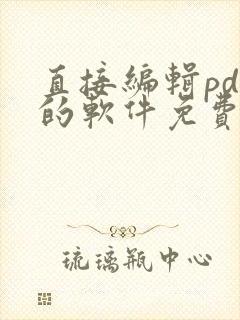 直接編輯pd
的軟件免費
琉璃瓶中心